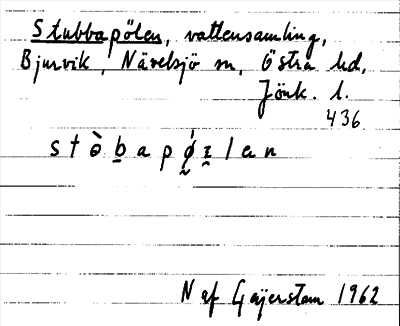 Stubbapölen, vattensamling,
Bjurvik, Nävelsjö sn, Östra hd,
Jönk. l.
436
stə̀b̠apǿ̰ɪ̰lən
N af Geijerstam 1962